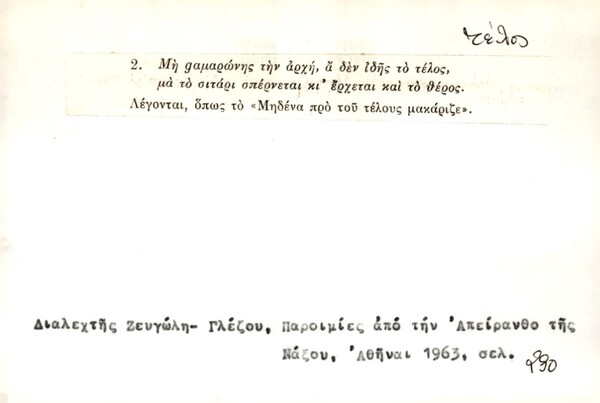 τέλος
2. Μὴ ϛαμαρώνῃς τὴν ἀρχή, ἂ δὲν ἰδῇς τὸ τέλος,
μὰ τὸ σιτάρι σπέρνεται κι' ἔρχεται καὶ τὸ θέρος.
Λέγονται, ὅπως τὸ «Μηδένα πρὸ τοῦ τέλους μακάριζε».
Διαλεχτῆς Ζευγώλη- Γλέζου, Παροιμίες ἀπό τήν Ἀπείρανθο τῆς
Νάξου, Ἀθῆναι 1963, σελ. 290